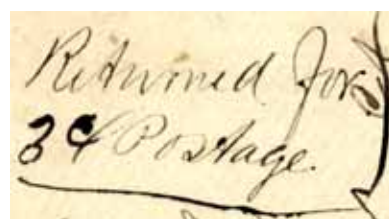 Returned for
3¢ Postage.